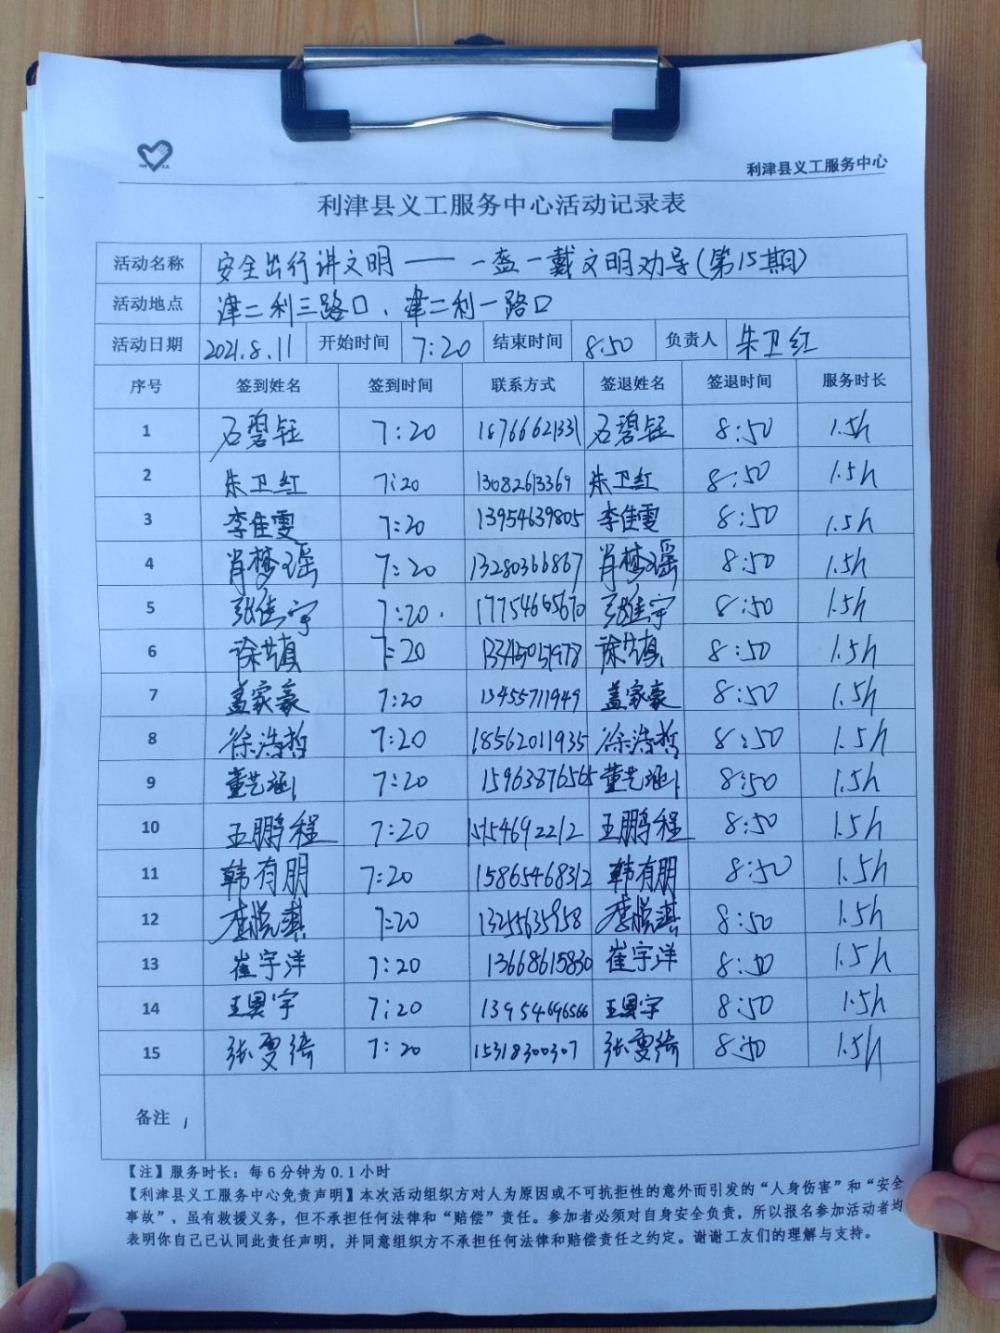 利津县义工服务中心
利津县义工服务中心活动记录表
活动名称 安全出行讲文明——一盔一戴文明劝导(第15期)
活动地点 津二利三路口、津二利一路口
活动日期 2021.8.11 开始时间 7:20 结束时间 8:50 负责人 朱卫红
序号 签到姓名 签到时间 联系方式 签退姓名 签退时间 服务时长
1 石碧钰 7:20 18766621331 石碧钰 8:50 1.5h
2 朱卫红 7:20 13082613369 朱卫红 8:50 1.5h
3 李佳雯 7:20 13954639805 李佳雯 8:50 1.5h
4 肖梦瑶 7:20 13280366867 肖梦瑶 8:50 1.5h
5 张佳宇 7:20. 17754665670 张佳宇 8:50 1.5h
6 徐艺真 7:20 8:50 1.5h
7 盖家豪 7:20 13455711949 盖家豪 8:50 1.5h
8 徐浩哲 7:20 18562011935 徐浩哲 8:50 1.5h
9 董艺涵 7:20 15963876565 董艺涵 8:50 1.5h
10 王鹏程 7:20 15154692212 王鹏程 8:50 1.5h
11 韩有朋 7:20 15865468312 韩有朋 8:50 1.5h
12 李悦淇 7:20 13255635958 李悦淇 8:50 1.5h
13 崔宇洋 7:20 13668615830 崔宇洋 8:50 1.5h
14 7:20 13954696566 8:50 1.5h
15 张雯绮 7:20 15318300307 张雯绮 8:50 1.5h
备注
【注】服务时长：每6分钟为0.1小时
【利津县义工服务中心免责声明】本次活动组织方对人为原因或不可抗拒性的意外而引发的“人身伤害”和“安全
事故”，虽有救援义务，但不承担任何法律和“赔偿”责任。参加者必须对自身安全负责，所以报名参加活动者均
表明你自己已认同此责任声明，并同意组织方不承担任何法律和赔偿责任之约定。谢谢工友们的理解与支持。